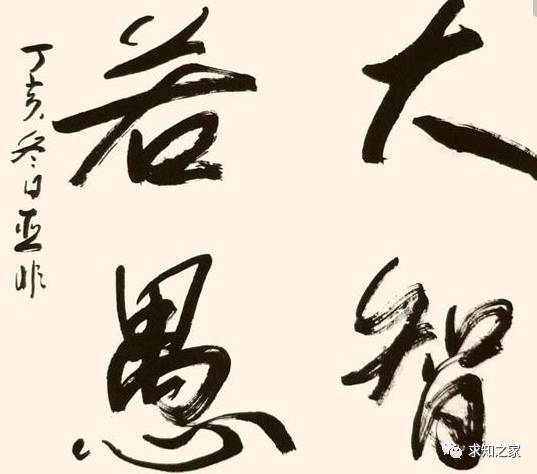 大智
若愚
丁亥冬日亚非
求知之家